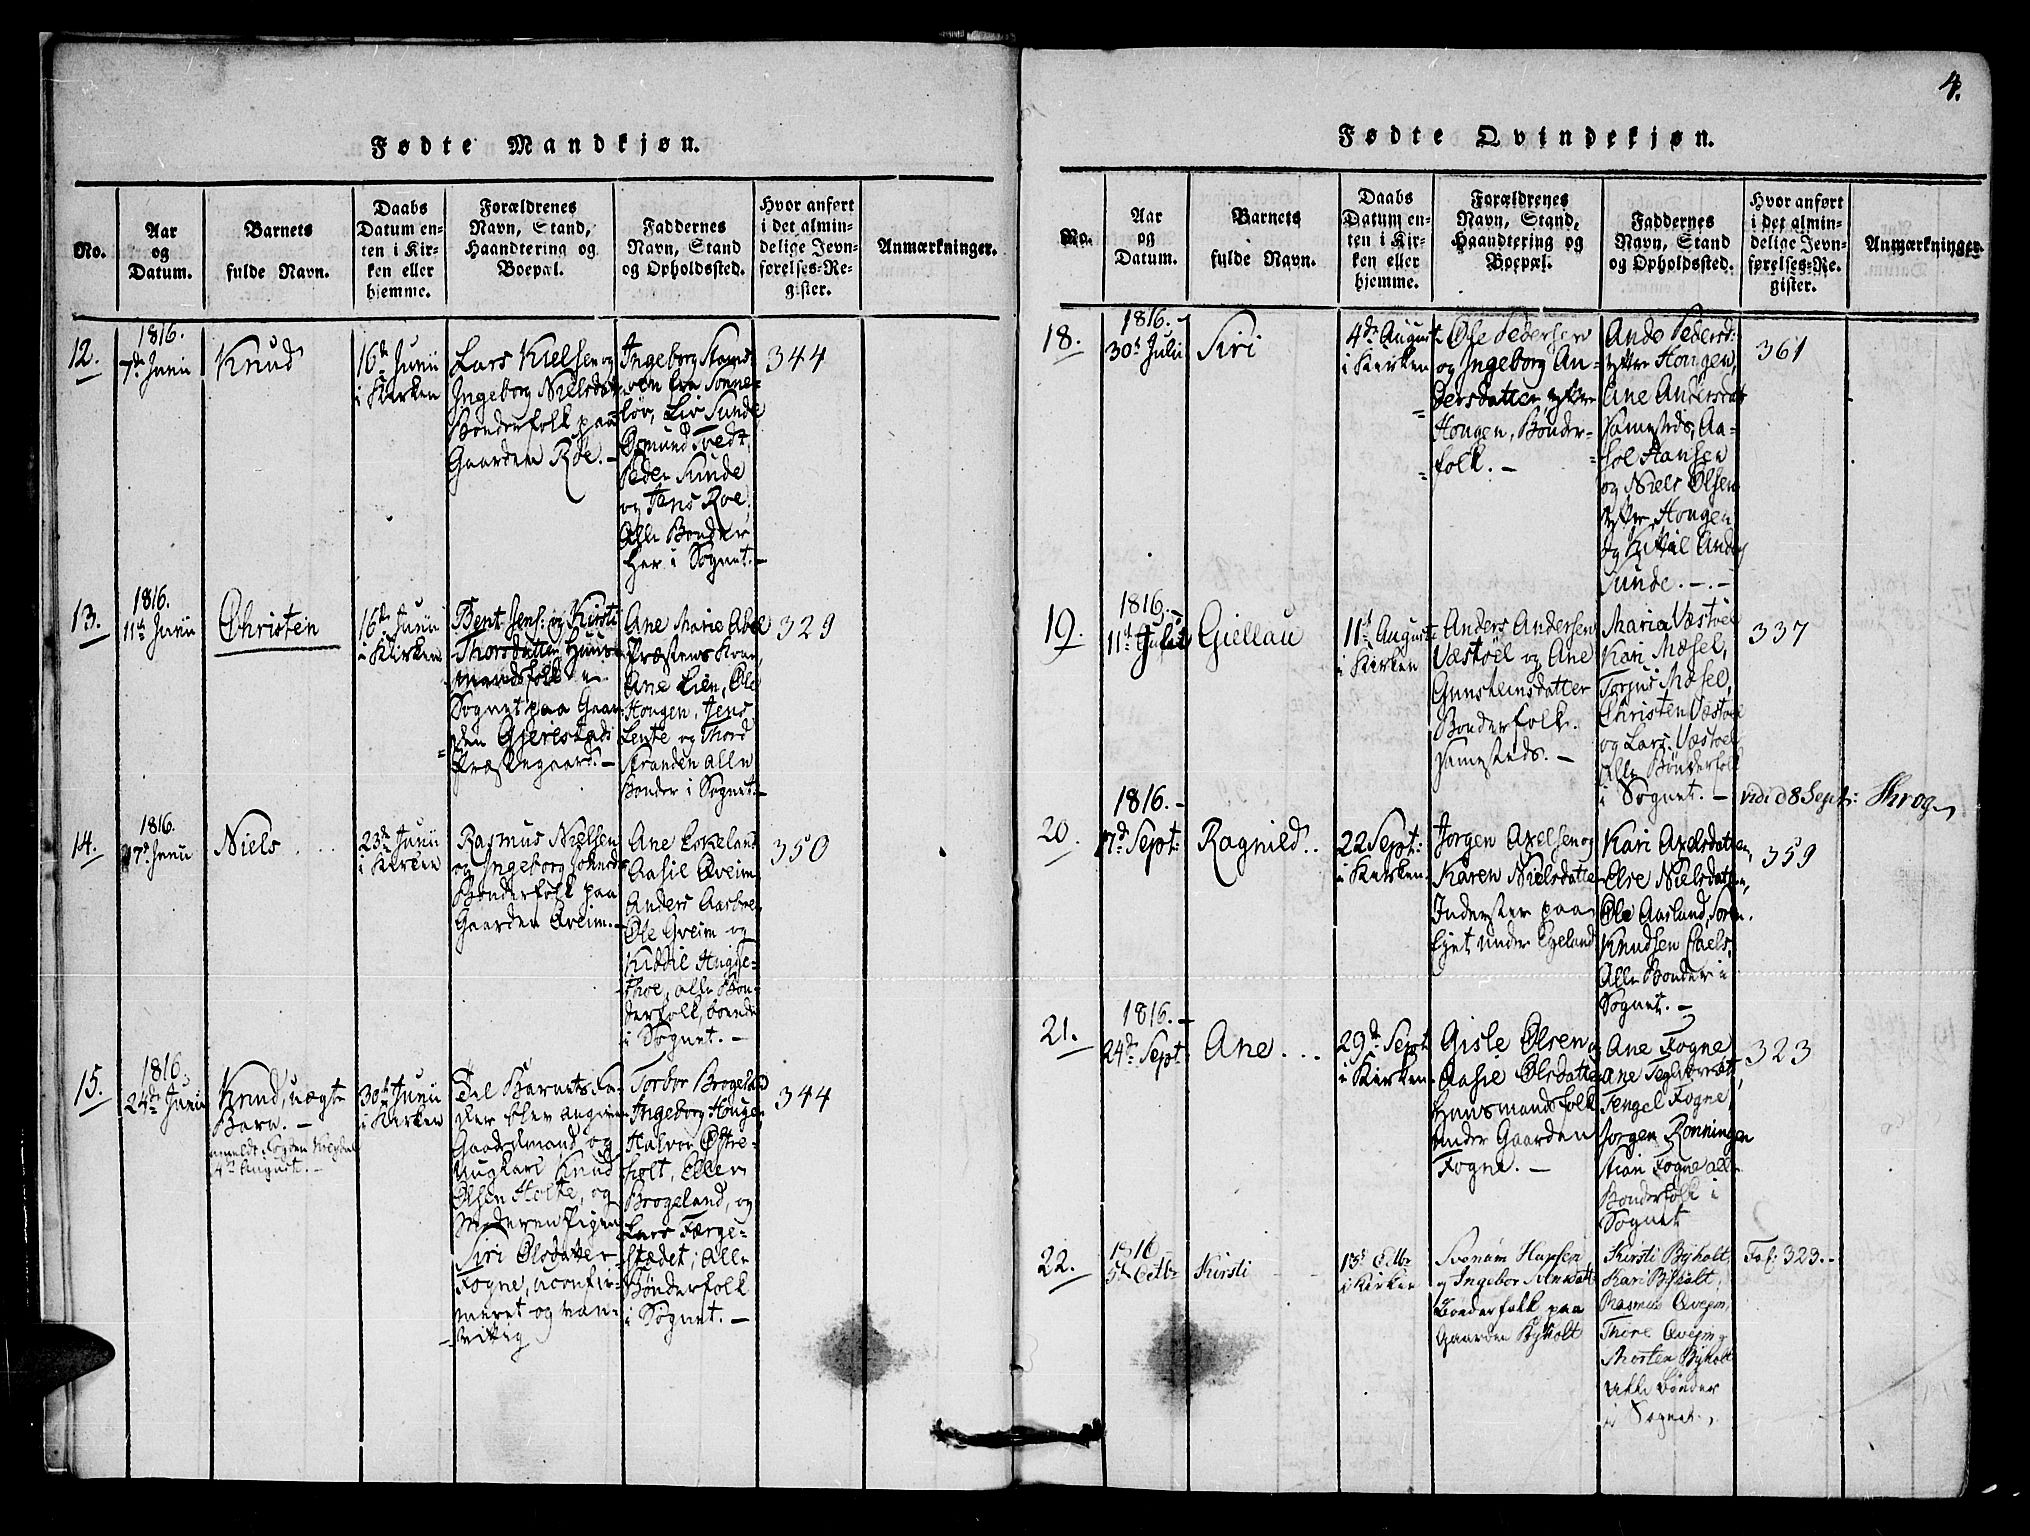 4.
Fødte Mandkjøn.
No.
Aar
og
Datum.
Barnets
fulde Navn.
Daabs
Datum en-
ten i Kir-
ken eller
hjemme.
Forældrenes
Navn, Stand,
Haandtering og
Boepæl.
Faddernes
Navn, Stand
og Opholdssted.
Hvor anført
i det almin-
delige Jevn-
førelses-Re-
gister.
Anmærkninger.
12.
1816.
7de Junii
Knud
16de Junii
i Kirken
Lars Kielsen og
Ingeborg Nielsdat
Bonderfolk paa
Gaarden Røe. -
Ingeborg
fra Sonne-
løv, Liv Sunde
Osmund Tvedt,
Peder Sunde
og Jens Roe,
Alle Bonder
her i Sognet. -
344
13.
1816.
11te Junii
Christen
16de Junii
i Kirken
Bent Jens: og Kirsti
Thorsdatter Huus-
mandsfolk i
Sognet paa Gaar-
den Gjerestads
Præstegaard. -
Ane Marie Abel
Præstens Kone,
Ane Lien, Ole
Hougen, Jens
Lente og Thord
Stranden alle
Bonder i Sognet. -
329
14.
1816.
17de Junii
Niels
23de Junii
i Kirken
Rasmus Nielsen
og Ingeborg
Bonderfolk paa
Gaarden Aveim. -
Ane Eskeland
Aasil Aveim
Anders Aasbre,
Ole Gveim og
Kiddil Hugge-
thoe, alle Bon-
derfolk, boende
i Sognet. -
350
15.
1816.
24de Junii
Knud, uægte
Barn. -
anmeldt
4de August. -
30te Junii
i Kirken
Til Barnets Fa-
der blev angiven
Gaardmand og
Ungkarl Knud
Olsen Holte, og
Moderen Pigen
Siri Olsdatter
Fogne, aconfir-
meret og van-
vittig
Torbor Brogeland
Ingeborg Hougen
Halvor Østre-
holt, Ellen
Brogeland, og
Lars Færge-
stædet; Alle
Bønderfolk
i Sognet. -
344
Fødte Qvindekjøn.
No.
Aar
og
Datum.
Barnets
fulde Navn.
Daabs
Datum en-
ten i Kir-
ken eller
hjemme.
Forældrenes
Navn, Stand,
Haandtering og
Boepæl.
Faddernes
Navn, Stand
og Opholdssted.
Hvor anført
i det almin-
delige Jevn-
førelses-Re-
gister.
Anmærkninger.
18.
1816. -
30te Julii
Siri
4de August
i Kirken
Ole Pedersen
og Ingeborg An-
dersdatter yttre
Hougen, Bønder-
folk. -
Ande Pedersd:
yttre Hougen,
Ane Andersdat
samesteds, Aa-
sol Hansen
og Niels Olsen
yttre Hougen
og Kittil Anders
Sunde. -.-
361
19.
1816. -
11te Julii
Giellau
11te August
i Kirken
Anders Andersen
Væstøel og Ane
Gunsteinsdatter
Bonderfolk.
samesteds. -
Maria Væstøel
Kari Mæsel,
Torjus Mæsel,
Christen Væstøel
og Lars Væstøel
Alle Bønderfolk
i Sognet. -
337
vidi d 8 Sept:
20.
1816. -
17de Sept:
Ragnild..
22 Sept:
i Kirken.
Jørgen Axelsen og
Karen Nielsdatter
Inderster paa
Ejet under Egeland
Kari Axelsdatter,
Else Nielsdatter,
Ole Aasland,
Knudsen
Alle Bonder i
Sognet. -
359
21.
1816. -
24de Sept:
Ane...
29de Sept
i Kirken
Gisle Olsen og
Aasie Olsdatter
Huusmandsfolk
under Gaarden
Fogne. -
Ane Fogne
Ane
Tengel Fogne,
Jørgen Rønningen
Stian Fogne alle
Bonderfolk i
Sognet
323
22.
1816
5te Octbr
Kirsti
13de Octbr
i Kirken
Svenum Hansen
og Ingebor
Bønderfolk paa
Gaarden Byholt
Kirsti Byholt,
Kari Byholt,
Rasmus Qvejm,
Thore Qvejm og
Morten Byholt
Alle Bønder
i Sognet.
Fol: 323. -